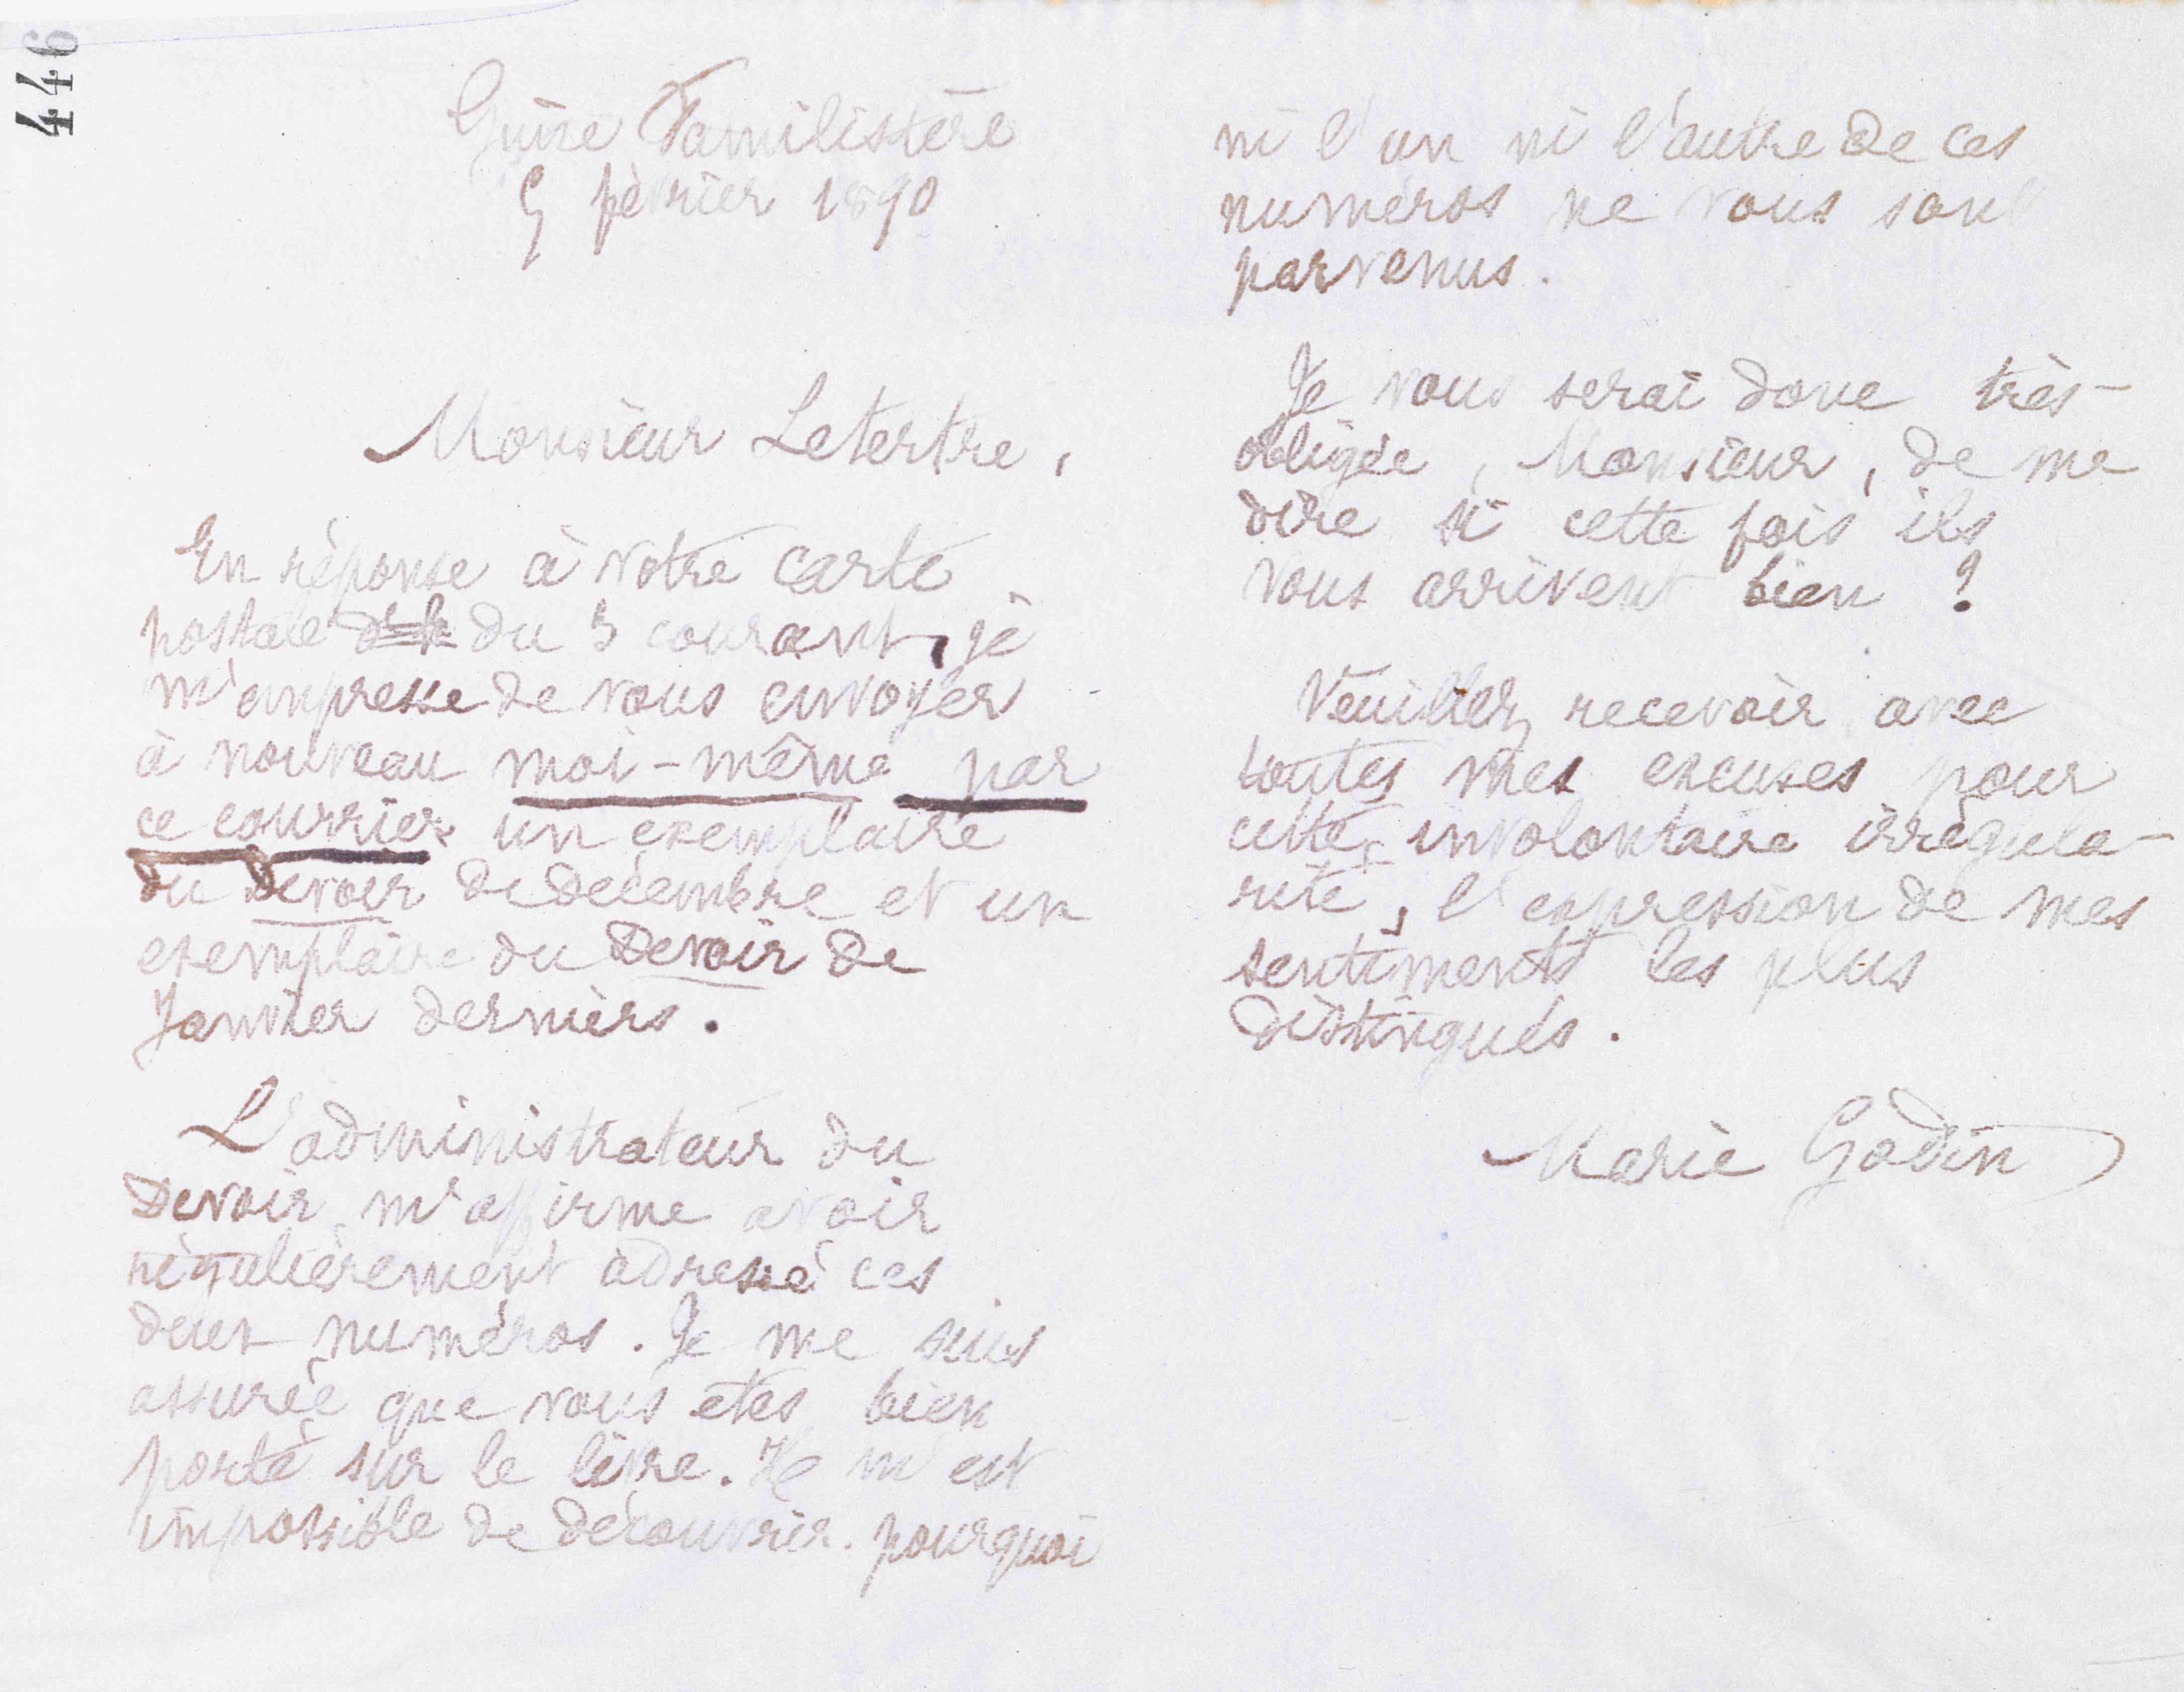 446
Guise Familistère
9 février 1890
Monsieur Letertre,
En réponse à votre carte
postale du 5 courant, je
m'empresse de vous envoyer
à nouveau moi-même par
ce courrier un exemplaire
du Devoir de décembre et un
exemplaire du Devoir de
Janvier derniers.
L'administrateur du
Devoir m'affirme avoir
régulièrement adressé ces
deux numéros. Je me suis
assurée que vous êtes bien
porté sur le livre. Il m'est
impossible de découvrir pourquoi
ni l'un ni l'autre de ces
numéros ne vous sont
parvenus.
Je vous serai donc très-
obligée, Monsieur, de me
dire si cette fois ils
vous arrivent bien ?
Veuillez recevoir avec
toutes mes excuses pour
cette involontaire irrégula-
rité, l'expression de mes
sentiments les plus
distingués.
Marie Godin